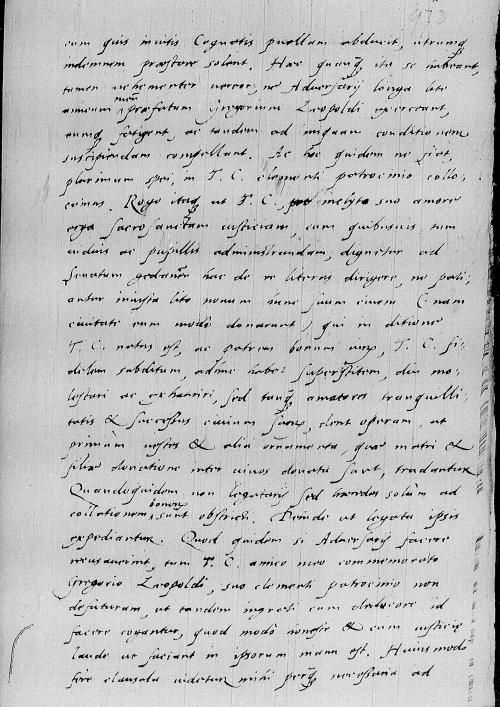 933
cum quis inuitis Cognatis puellam abducit, utrumq
indemnem praestare solent. Haec quamq ita se habeant,
tamen uehementer uereor, ne Adversarij longa lite
amicum meum praefatum Gregorium Leopoldi exerceant,
eumq fatigent, ac tandem ad iniquam conditionem
suscipiendam compellant. Ac hoc quidem ne fiat,
plurimum spei, in T. C. clementi patrocinio collo-
camus. Rogo itaq ut T. C., pro inclyto suo amore
erga sacrosanctam iusticiam, cum quibusuis, tum
uiduis ac pupillis administrandam, dignetur ad
Senatum gedanen hac de re literas dirigere, ne pati-
antur iniusta lite nouum nunc suum ciuem (nam
ciuitate eum modo donarunt) qui in ditione
T. C. natus est, ac patrem bonum uirum, T. C. fi-
delem subditum, adhuc habet superstitem, diu mo-
lestari ac exhauriri, sed tanq amatores tranquilli-
tatis & successus ciuium suorum, dent operam, ut
primum uestes & alia ornamenta, quae matri &
filiae donatione inter uiuos donata sunt, tradantur
Quandoquidem non legatarij sed haeredes solum ad
collationem bonorum sunt obstricti. Deinde ut legata ipsis
expediantur. Quod quidem si Adversarij facere
recusauerint, tum T. C. amico meo commemorato
Gregorio Leopoldi, suo clementi patrocinio non
defuturam, ut tandem ingrati cum dedecore id
facere cogantur, quod modo honeste & cum iusticiae
laude ut faciant in ipsorum manu est. Huiusmodi
fere clausula uidetur mihi perq necessaria ad